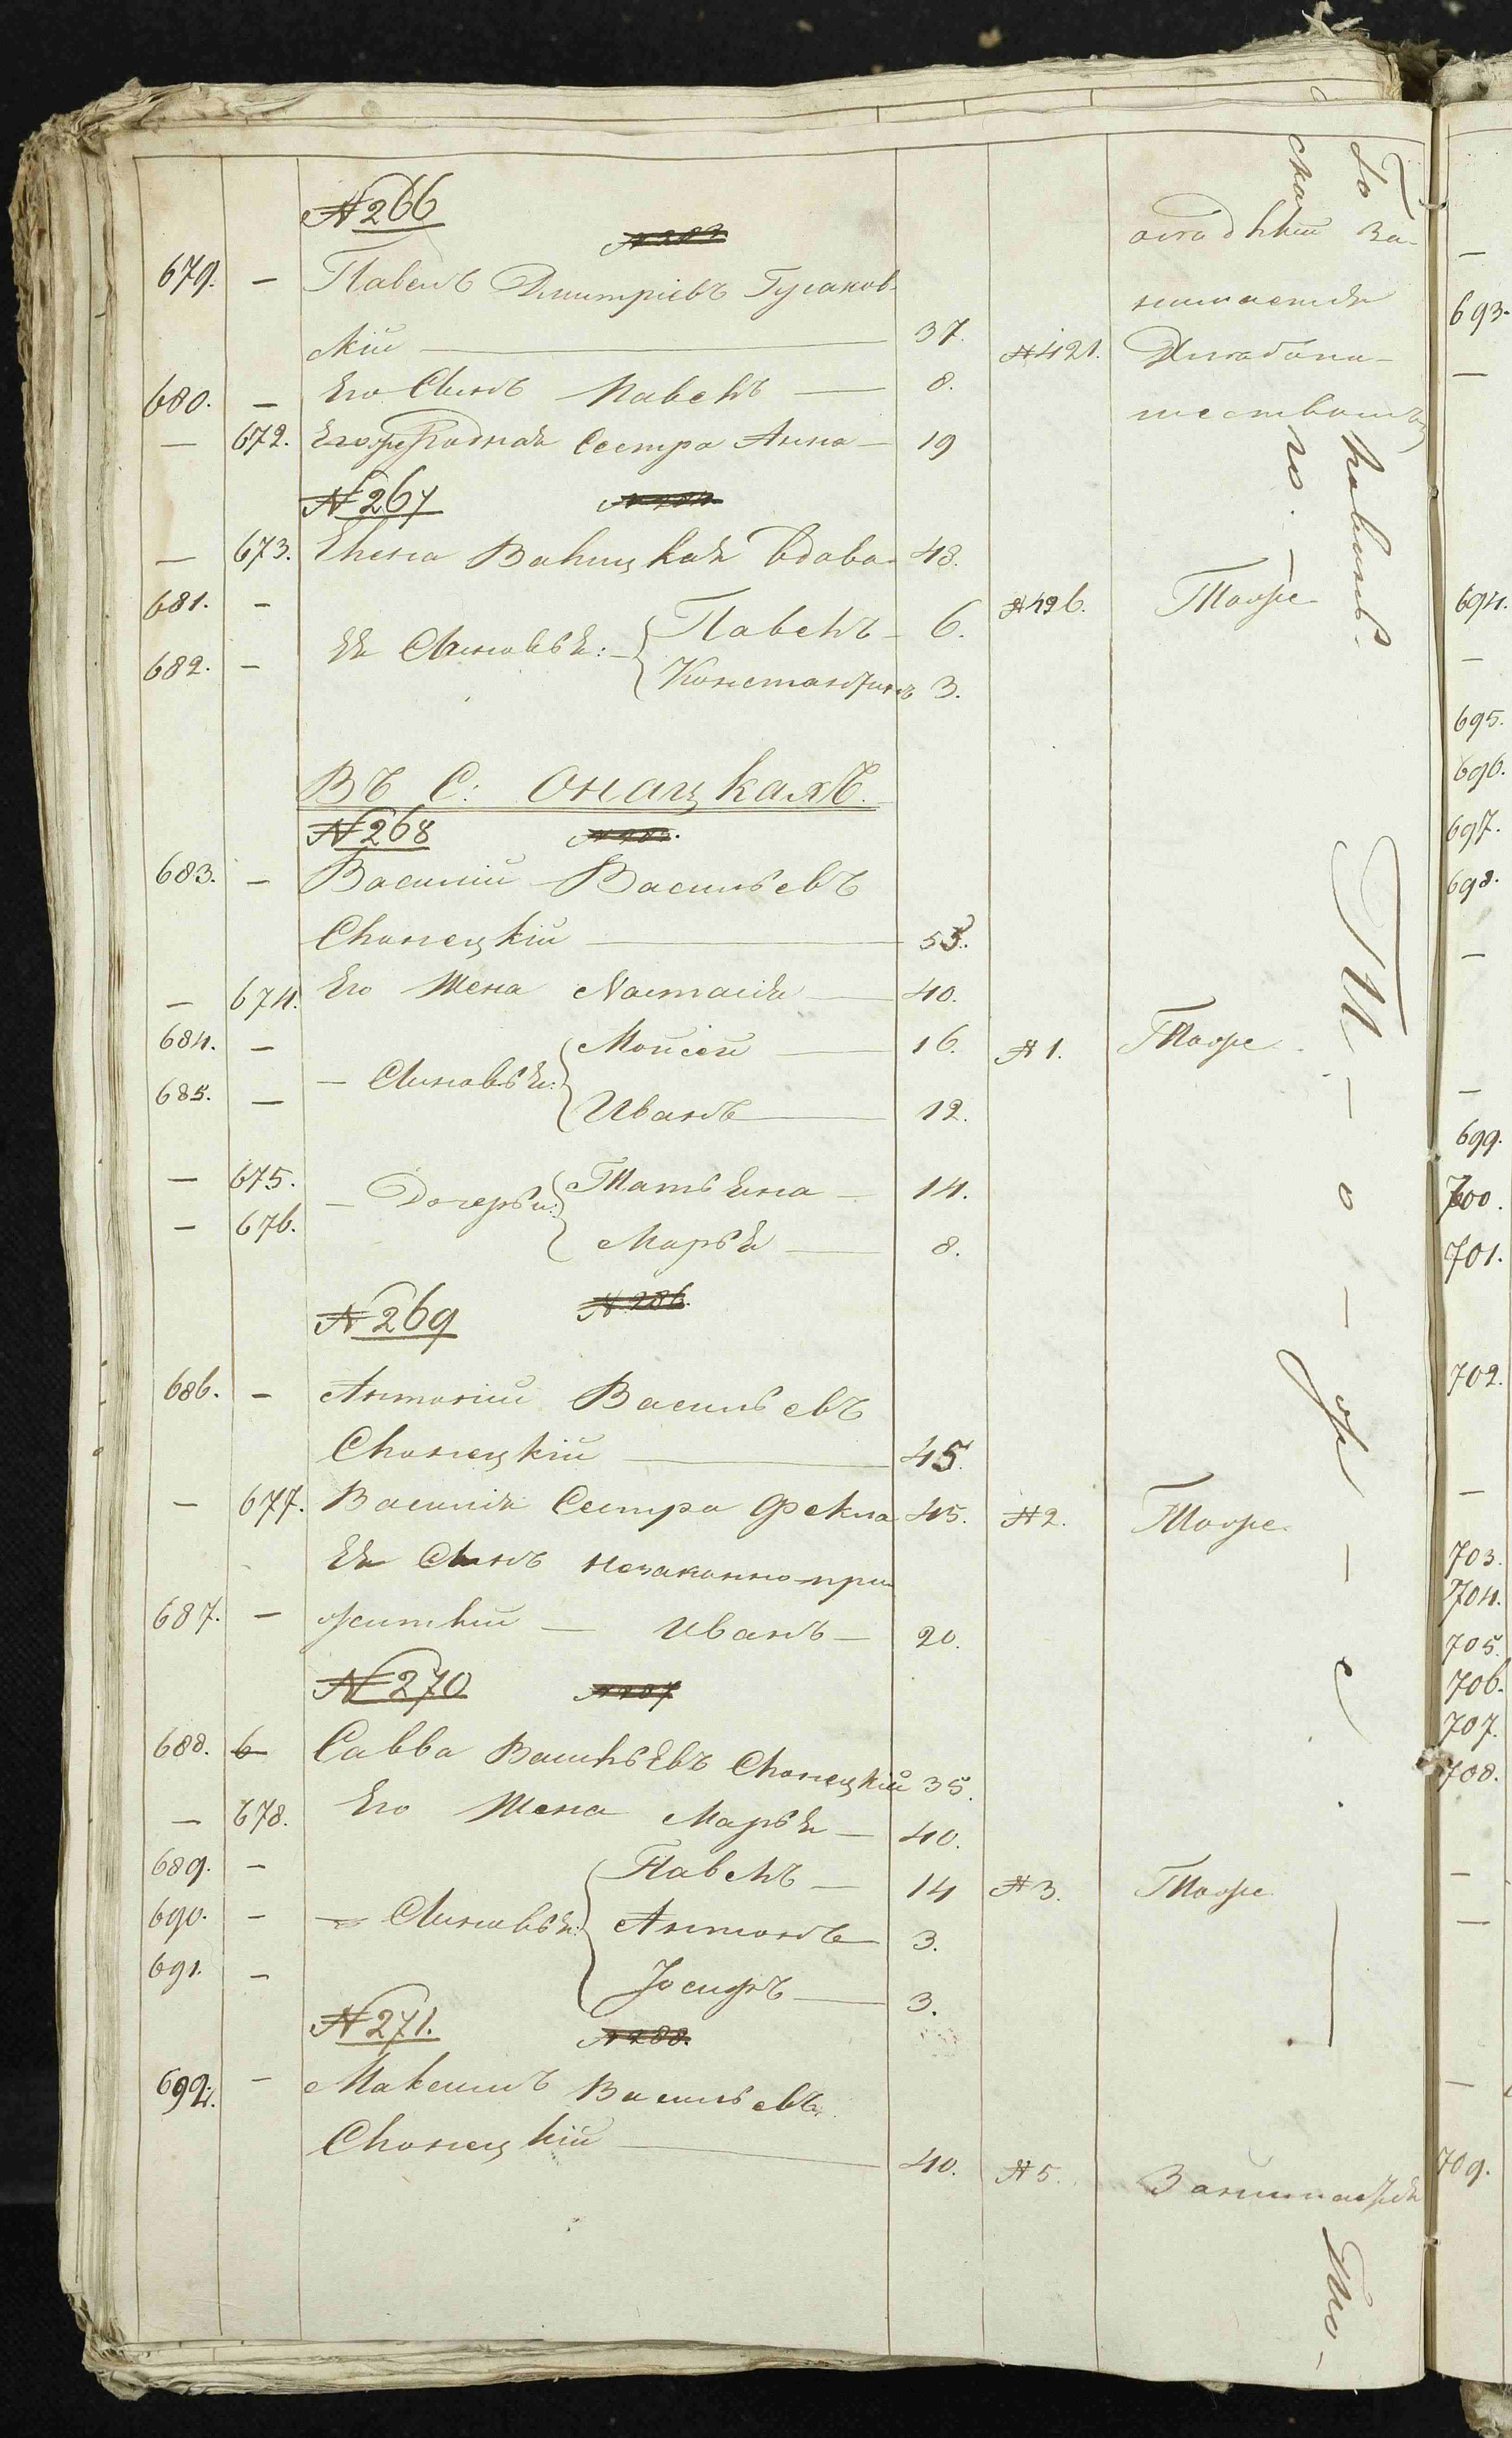 № 266
679. — Павелъ Дмитріевъ Гусаков-
скій — 37. № 421.
680. — Его Сынъ Павелъ — 8.
— 672. Его же Родная Сестра Анна — 19
осѣдлый за-
нимается
Хлѣбопа-
шествомъ
№ 267
— 673. Елена Валицкая вдова 48.
681. — Ея Сыновья: Павелъ — 6. № 426. Тоже
682. — Константинъ 3.
Въ С: Онацкахъ.
№ 268
683. — Василій Васильевъ
Слонецкій — 55.
— 674. Его Жена Настасія — 40.
684. — — Сыновья: Мойсей — 16. № 1. Тоже
685. — Иванъ — 12.
— 675. — Дочерьи: Татьяна — 14.
— 676. Марья — 8.
№ 269 № 286.
686. — Антоній Васильевъ
Слонецкій — 45.
— 677. Василія Сестра Фекла 45. № 2. Тоже
Ея Сынъ незаконно при-
687. — житый — Иванъ — 20.
№ 270 № 287
688. Савва Васильевъ Слонецкій 35.
— 678. Его Жена Марья — 40.
689. — Павелъ — 14 № 3. Тоже
690. — — Сыновья: Антонъ 3.
691. — Іосифъ — 3.
№ 271. № 288.
692. — Максимъ Васильевъ
Слонецкій — 40. № 5. Занимается
Т — о — ж — е
693.
694.
695.
696.
697.
698.
699.
700.
701.
702.
703.
704.
705.
706.
707.
708.
709.